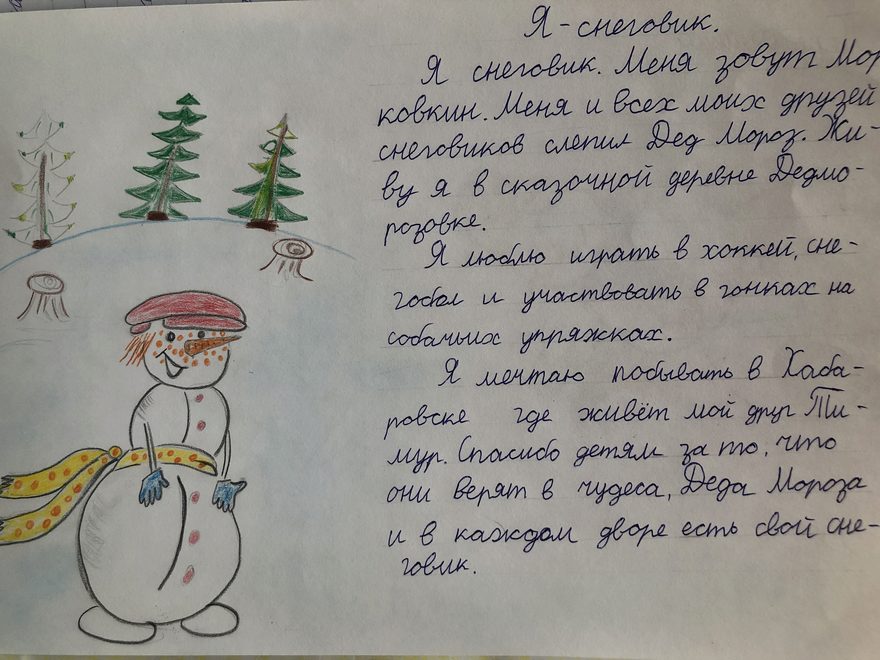 Я - снеговик.
Я снеговик. Меня зовут Мор
ковкин. Меня и всех моих друзей
снеговиков слепил Дед Мороз. Жи-
ву я в сказочной деревне Дедмо-
розовке.
Я люблю играть в хоккей, сне-
гобол и участвовать в гонках на
собачьих упряжках.
Я мечтаю побывать в Хаба-
ровске где живёт мой друг Ти-
мур. Спасибо детям за то, что
они верят в чудеса, Деда Мороза
и в каждом дворе есть свой сне-
говик.